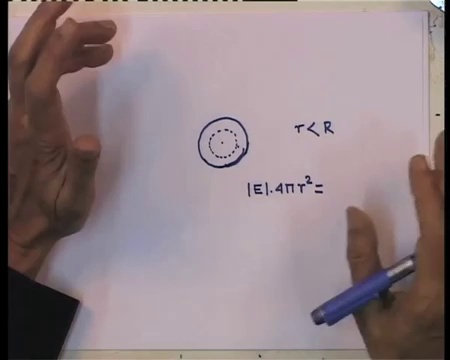 r < R
|E|.4πr²=